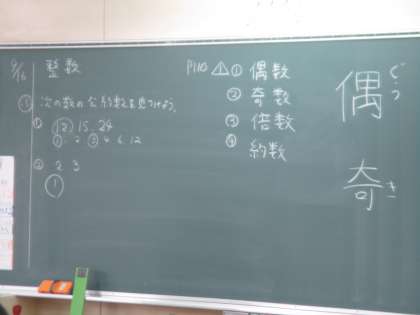 9/16
整数
① 次の数の公約数を見つけよう。
① 12 15 24
① 2 ③ 4 6 12
② 2 3
①
P110 ① 偶数
② 奇数
③ 倍数
④ 約数
偶 ぐう
奇 き